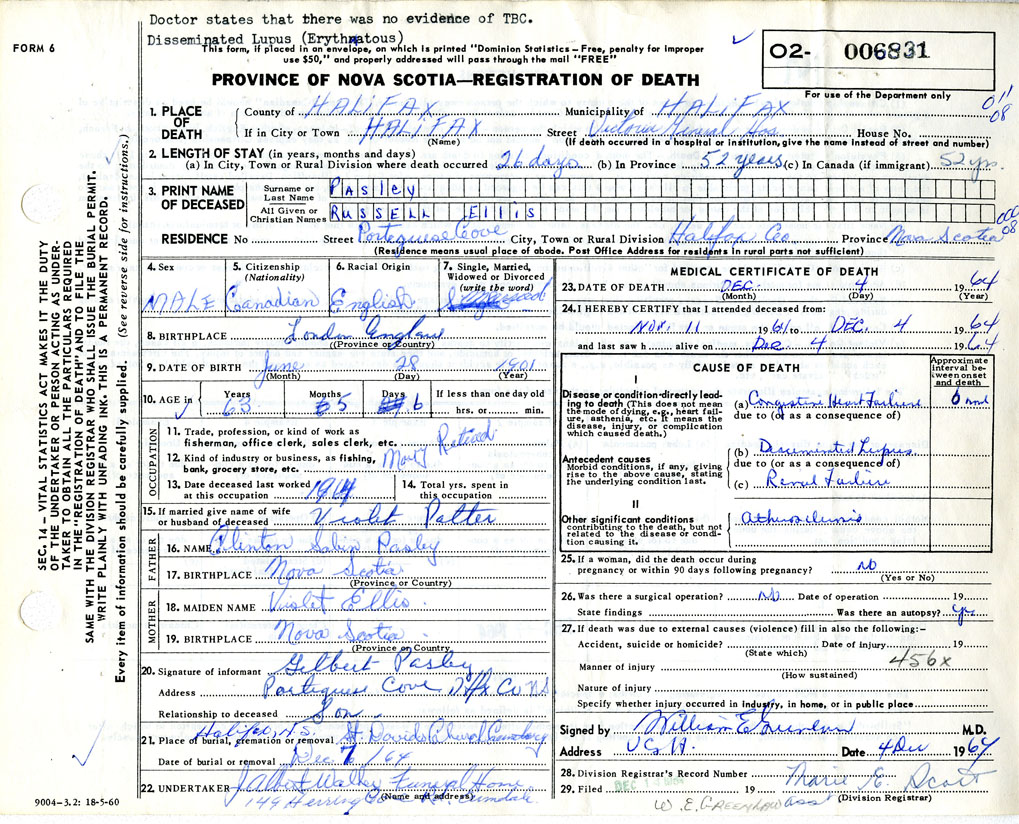 Doctor states that there was no evidence of TBC.
Disseminated Lupus (Erythmatous)
FORM 6
This form, if placed in an envelope, on which is printed "Dominion Statistics – Free, penalty for improper
use $50," and properly addressed will pass through the mail "FREE"
O2- 006831
For use of the Department only
PROVINCE OF NOVA SCOTIA—REGISTRATION OF DEATH
011
08
1. PLACE OF DEATH
County of HALIFAX Municipality of HALIFAX
If in City or Town HALIFAX Street Victoria General Hos. House No.
(Name) (If death occurred in a hospital or institution, give the name instead of street and number)
2. LENGTH OF STAY (in years, months and days)
(a) In City, Town or Rural Division where death occurred 26 days (b) in Province 52 years (c) In Canada (if immigrant) 52 yrs.
3. PRINT NAME OF DECEASED
Surname or Last Name PASley
All Given or Christian Names RUSSELL Ellis
000
08
RESIDENCE No Street Porteguise Cove City, Town or Rural Division Halifax Co Province Nova Scotia
(Residence means usual place of abode. Post Office Address for residents in rural parts not sufficient)
4. Sex MALE
5. Citizenship (Nationality) Canadian
6. Racial Origin English
7. Single, Married, Widowed or Divorced (write the word) Married
8. BIRTHPLACE London England
(Province or Country)
9. DATE OF BIRTH June 28 1901
(Month) (Day) (Year)
10. AGE in Years 63 Months 5 Days 6 If less than one day old hrs. or min.
OCCUPATION
11. Trade, profession, or kind of work as fisherman, office clerk, sales clerk, etc. Retired
12. Kind of industry or business, as fishing, bank, grocery store, etc.
13. Date deceased last worked at this occupation 1964
14. Total yrs. spent in this occupation
15. If married give name of wife or husband of deceased Violet Palter
FATHER
16. NAME Clinton Sabin Pasley
17. BIRTHPLACE Nova Scotia
(Province or Country)
MOTHER
18. MAIDEN NAME Violet Ellis
19. BIRTHPLACE Nova Scotia
(Province or Country)
20. Signature of informant Gilbert Pasley
Address Porteguise Cove Hfx Co NS
Relationship to deceased Son
21. Place of burial, cremation or removal Halifax, N.S. St. Davids Church Cemetery
Date of burial or removal Dec 7/64
22. UNDERTAKER J Albert Walker Funeral Home
(Name and address)
149 Herring Cove Rd. Armdale
9004–3.2: 18-5-60
MEDICAL CERTIFICATE OF DEATH
23. DATE OF DEATH DEC. 4 1964
(Month) (Day) (Year)
24. I HEREBY CERTIFY that I attended deceased from:
Nov. 11 1961 to DEC. 4 1964
and last saw h alive on Dec 4 1964
CAUSE OF DEATH
Approximate interval between onset and death
I
Disease or condition directly leading to death (This does not mean the mode of dying, e.g., heart failure, asthenia, etc. It means the disease, injury, or complication which caused death.)
(a) Congestive Heart Failure
due to (or as a consequence of)
Antecedent causes
Morbid conditions, if any, giving rise to the above cause, stating the underlying condition last.
(b) Disseminated Lupus
due to (or as a consequence of)
(c) Renal Failure
II
Other significant conditions contributing to the death, but not related to the disease or condition causing it.
25. If a woman, did the death occur during pregnancy or within 90 days following pregnancy? No
(Yes or No)
26. Was there a surgical operation? No Date of operation 19
State findings Was there an autopsy? yes
27. If death was due to external causes (violence) fill in also the following:–
Accident, suicide or homicide? Date of injury 19
(State which)
456x
Manner of injury
(How sustained)
Nature of injury
Specify whether injury occurred in industry, in home, or in public place
Signed by William E Greenlaw M.D.
Address V.G.H. Date 4 Dec 1964
28. Division Registrar's Record Number
29. Filed DEC 19 Marie E. Scott
(Division Registrar)
W. E. GREENLAW asst
SEC. 14 – VITAL STATISTICS ACT MAKES IT THE DUTY
OF THE UNDERTAKER OR PERSON ACTING AS UNDER-
TAKER TO OBTAIN ALL THE PARTICULARS REQUIRED
IN THE "REGISTRATION OF DEATH" AND TO FILE THE
SAME WITH THE DIVISION REGISTRAR WHO SHALL ISSUE THE BURIAL PERMIT.
WRITE PLAINLY WITH UNFADING INK. THIS IS A PERMANENT RECORD.
Every item of information should be carefully supplied. (See reverse side for instructions.)